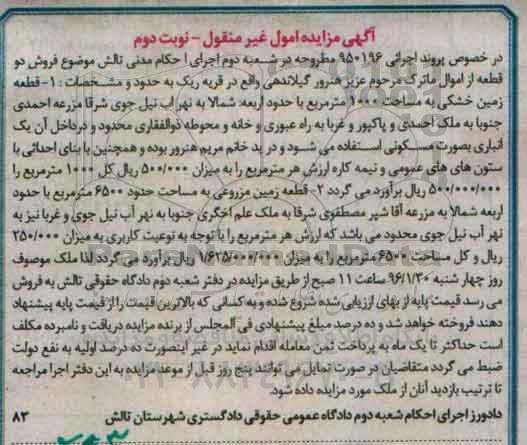 آگهی مزایده اموال غیر منقول - نوبت دوم
در خصوص پروند اجرائی ۹۵۰۱۹۶ مطروحه در شعبه دوم اجرای احکام مدنی تالش موضوع فروش دو
قطعه از اموال ماترک مرحوم عزیز هنرور گیلاندهی واقع در قریه ریک به حدود و مشخصات : ۱- قطعه
زمین خشکی به مساحت ۱۰۰۰ مترمربع با حدود اربعه: شمالا به نهر آب نیل جوی شرقا مزرعه احمدی
جنوبا به ملک احمدی و پاکپور و غربا به راه عبوری و خانه و محوطه ذوالفقاری محدود و درداخل آن یک
انباری بصورت مسکونی استفاده می شود و در ید خانم مریم هنرور بوده و همچنین با بنای احداثی با
ستون های های عمومی و نیمه کاره ارزش هر مترمربع را به میزان ۵۰۰/۰۰۰ ریال کل ۱۰۰۰ مترمربع را
۵۰۰/۰۰۰/۰۰۰ ریال برآورد می گردد ۲- قطعه زمین مزروعی به مساحت حدود ۶۵۰۰ مترمربع با حدود
اربعه شمالا به مزرعه آقا شیر مصطفوی شرقا به ملک علم اخگری جنوبا به نهر آب نیل جوی و غربا نیز به
نهر آب نیل جوی محدود می باشد که ارزش هر مترمربع را با توجه به نوعیت کاربری به میزان ۲۵۰/۰۰۰
ریال و کل مساحت ۶۵۰۰ مترمربع را به میزان ۱/۶۲۵/۰۰۰/۰۰۰ ریال برآورد می گردد لذا ملک موصوف
روز چهار شنبه ۹۶/۱/۳۰ ساعت ۱۱ صبح از طریق مزایده در دفتر شعبه دوم دادگاه حقوقی تالش به فروش
می رسد قیمت پایه از بهای ارزیابی شده شروع شده و به کسانی که بالاترین قیمت را از قیمت پایه پیشنهاد
دهند فروخته خواهد شد و ده درصد مبلغ پیشنهادی فی المجلس از برنده مزایده دریافت و نامبرده مکلف
است حداکثر تا یک ماه به پرداخت ثمن معامله اقدام نماید در غیر اینصورت ده درصد اولیه به نفع دولت
ضبط می گردد متقاضیان در صورت تمایل می توانند پنج روز قبل از موعد مزایده به این دفتر اجرا مراجعه
تا ترتیب بازدید آنان از ملک مورد مزایده داده شود.
دادورز اجرای احکام شعبه دوم دادگاه عمومی حقوقی دادگستری شهرستان تالش ۸۳